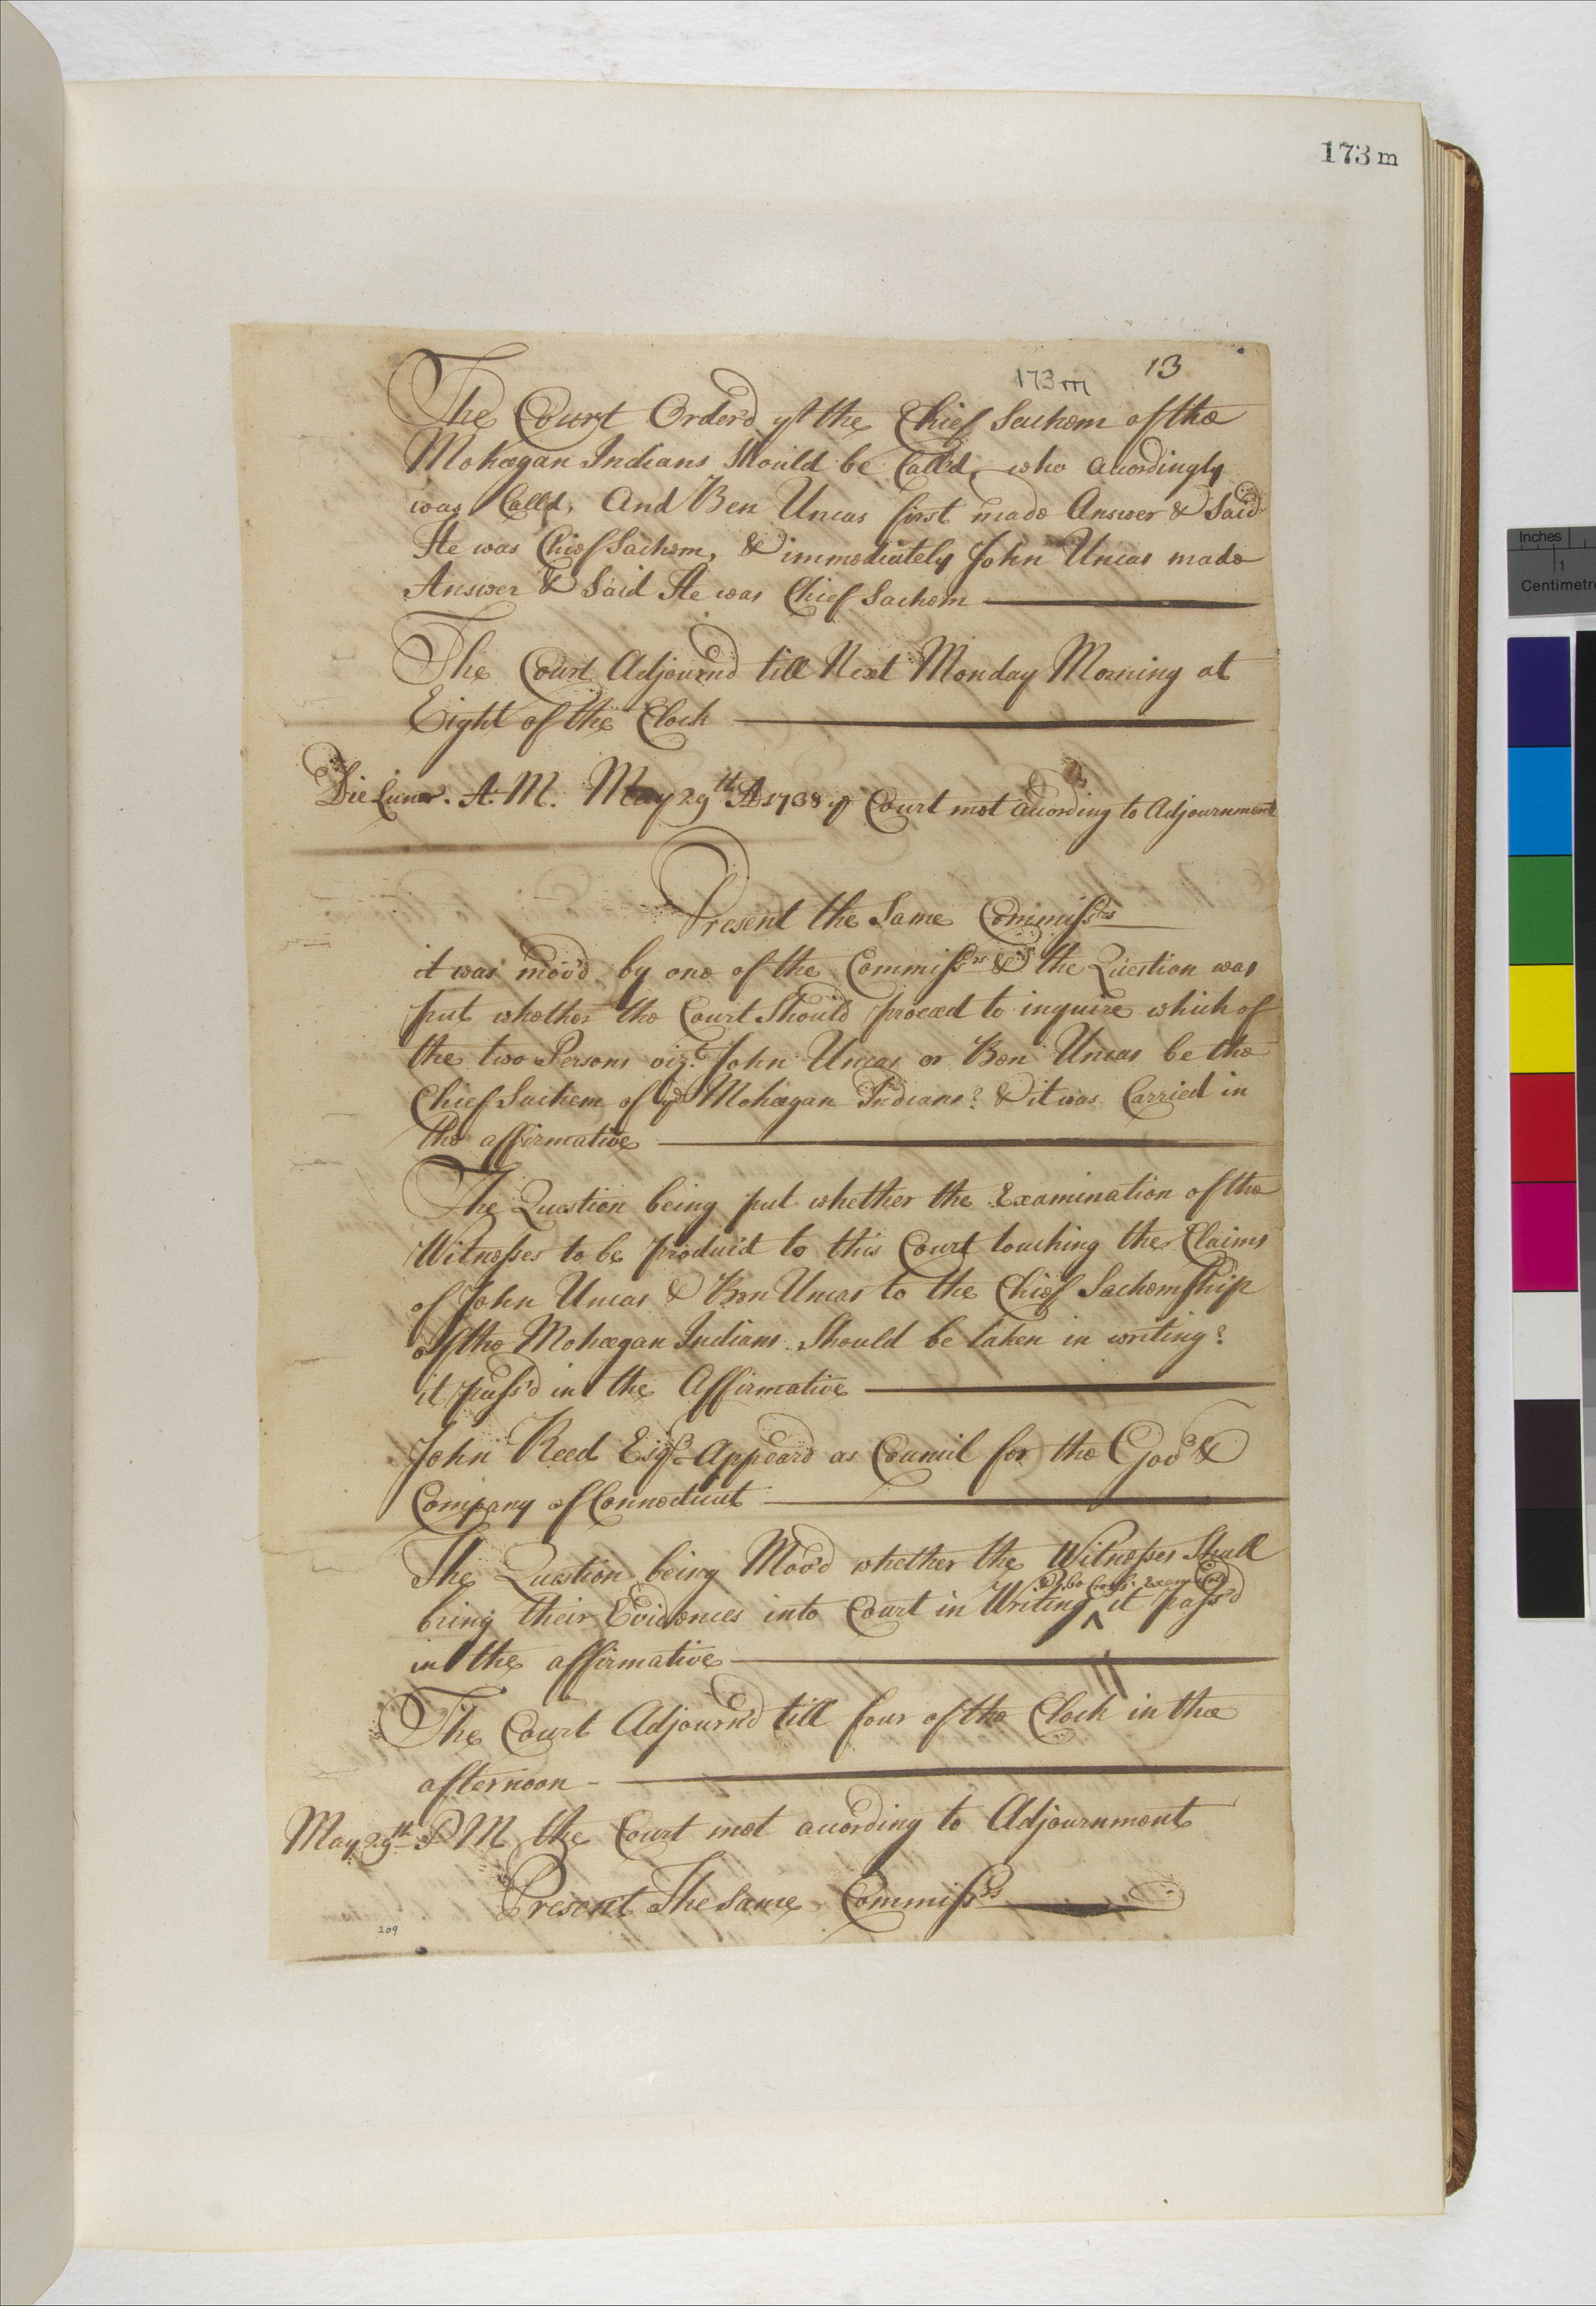 173 m
13
173 m
The Court Order'd yt the Chief Sachem of the
Mohegan Indians Should be Call'd, who acordingly
was Call'd, And Ben Uncas first made Answer & Said
He was Chief Sachem, & immediately John Uncas made
Answer & Said He was Chief Sachem
The Court Adjournd till Next Monday Morning at
Eight of the Clock
Die Lunæ. A. M. May 29th AD 1738 ye Court met acording to Adjournment
Present the Same Commissrs
it was mov'd by one of the Commissrs & the Question was
put whether the Court Should proceed to inquire which of
the two Persons vizt. John Uncas or Ben Uncas be the
Chief Sachem of ye Mohegan Indians? & it was Carried in
the affirmative
The Question being put whether the Examination of the
Witnesses to be produc'd to this Court touching the Claims
of John Uncas & Ben Uncas to the Chief Sachemship
of the Mohegan Indians Should be taken in writing?
it pass'd in the Affirmative
John Reed Esqr Appeard as Council for the Govr &
Company of Connecticut
The Question being Mov'd whether the Witnesses Shall
& be Cross: Examin'd
bring their Evidences into Court in Writing ^ it pass'd
in the affirmative
The Court Adjourn'd till four of the Clock in the
afternoon
May 29th P M the Court met acording to Adjournment
Present The Same Commissrs
209
Inches
1
Centimetre